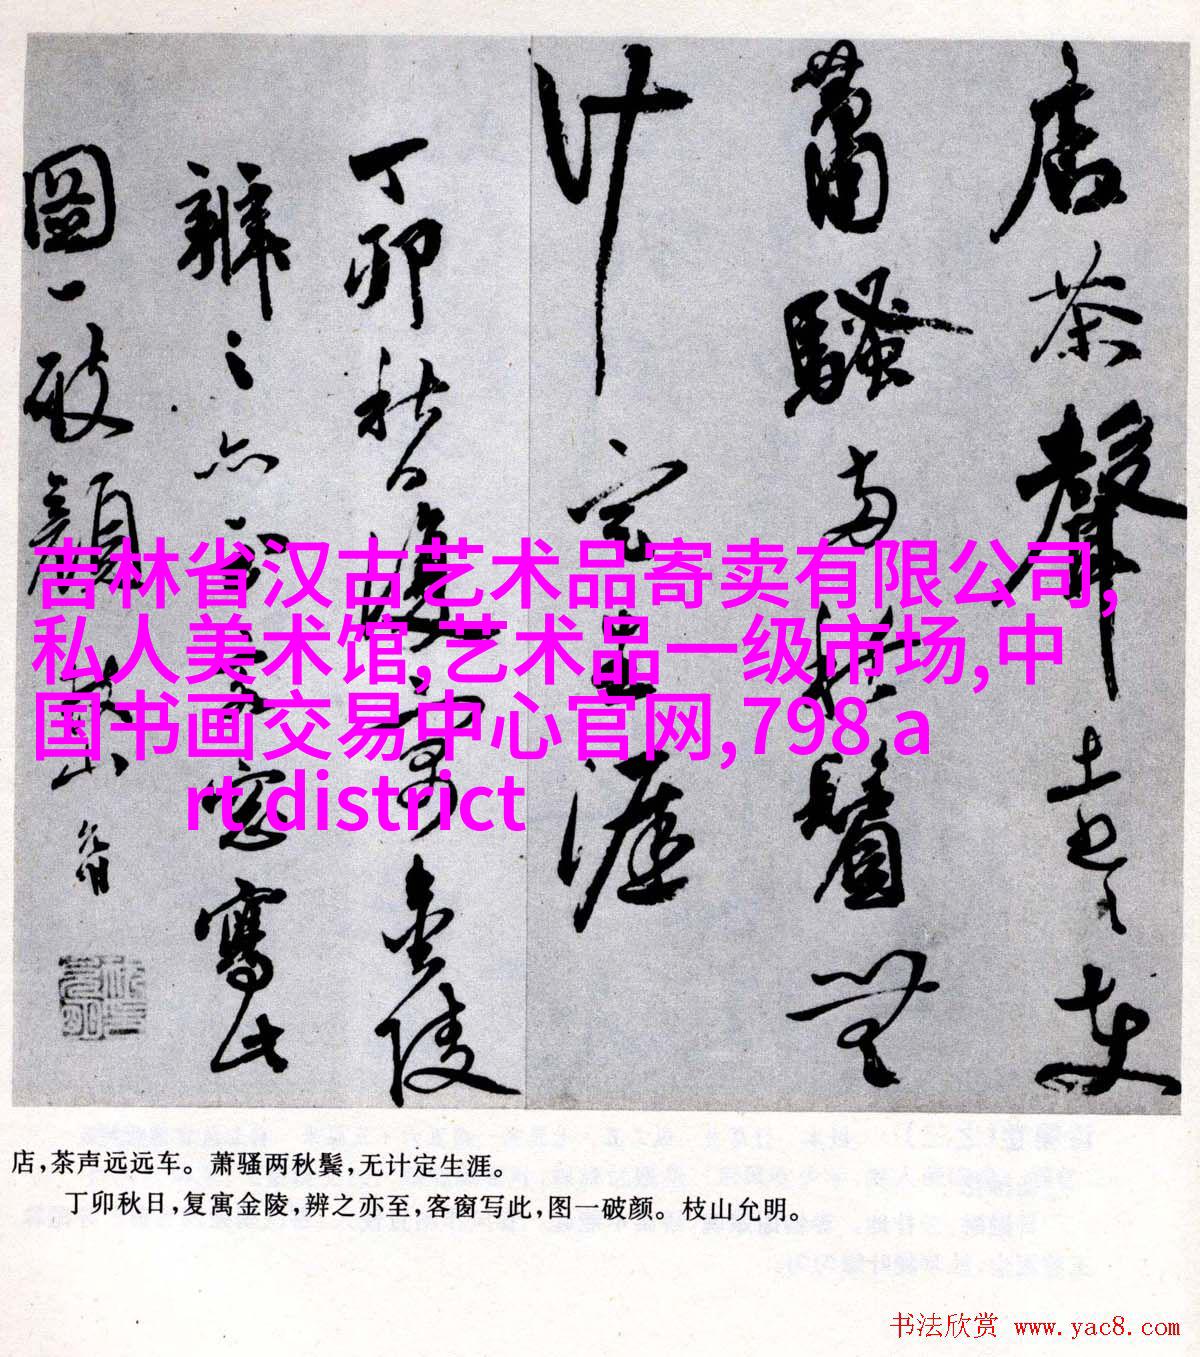 店茶聲遠〻車
蕭騷兩秋鬢無
计定生涯
丁卯秋日復寓金陵
辨之亦至客窓寫此
圖一破顔枝山允明
吉林省汉古艺术品寄卖有限公司,
私人美术馆,艺术品一级市场,中
国书画交易中心官网,798 a
rt district
店,茶声远远车。萧骚两秋鬓,无计定生涯。
丁卯秋日,复寓金陵,辨之亦至,客窗写此,图一破颜。枝山允明。
书法欣赏 www.yac8.com